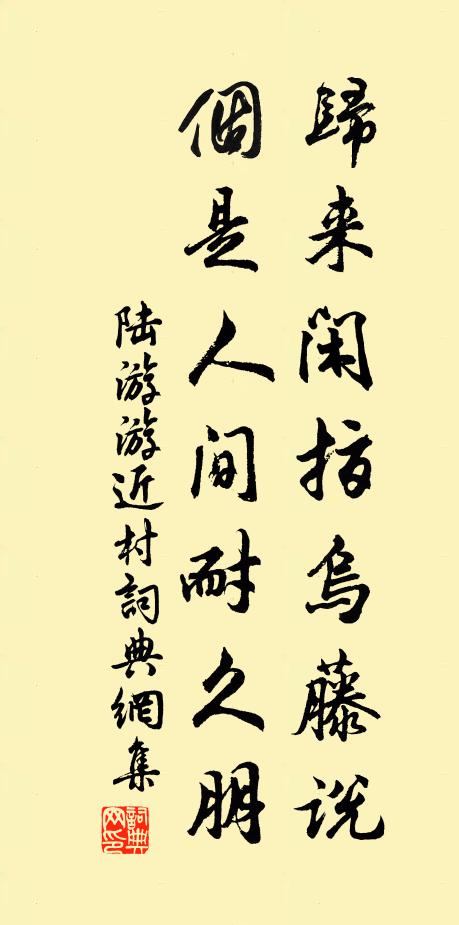 歸来閑指烏藤説
個是人間耐久朋
陆游游近村詞典網集
詞典網印